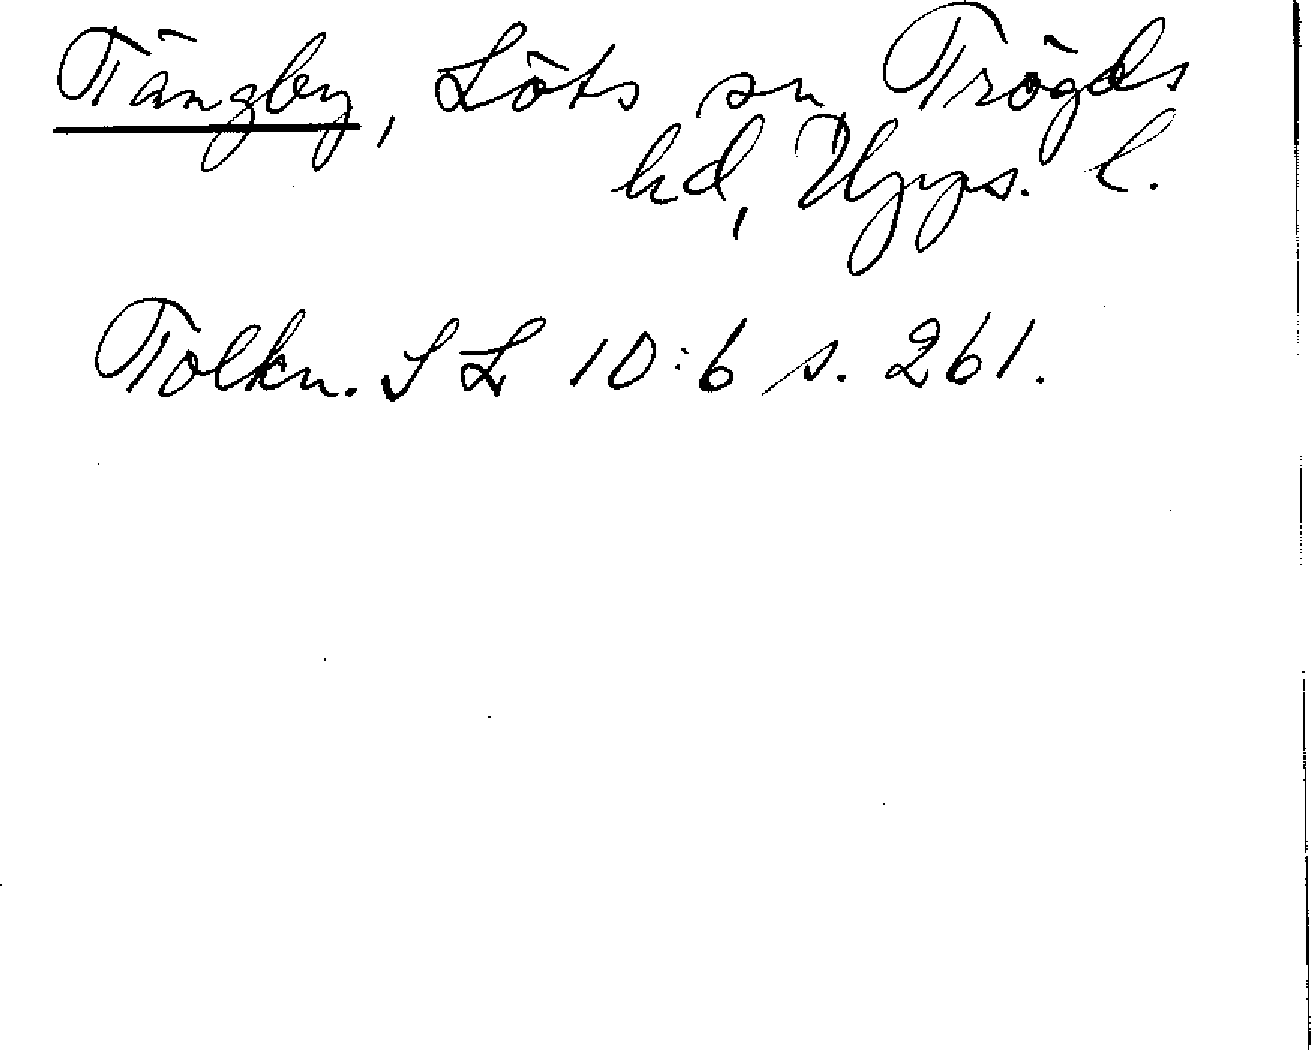 Tängby, Löts sn Trögds
hd, Upps. l.
Tolkn. SL 10:6 s. 261.